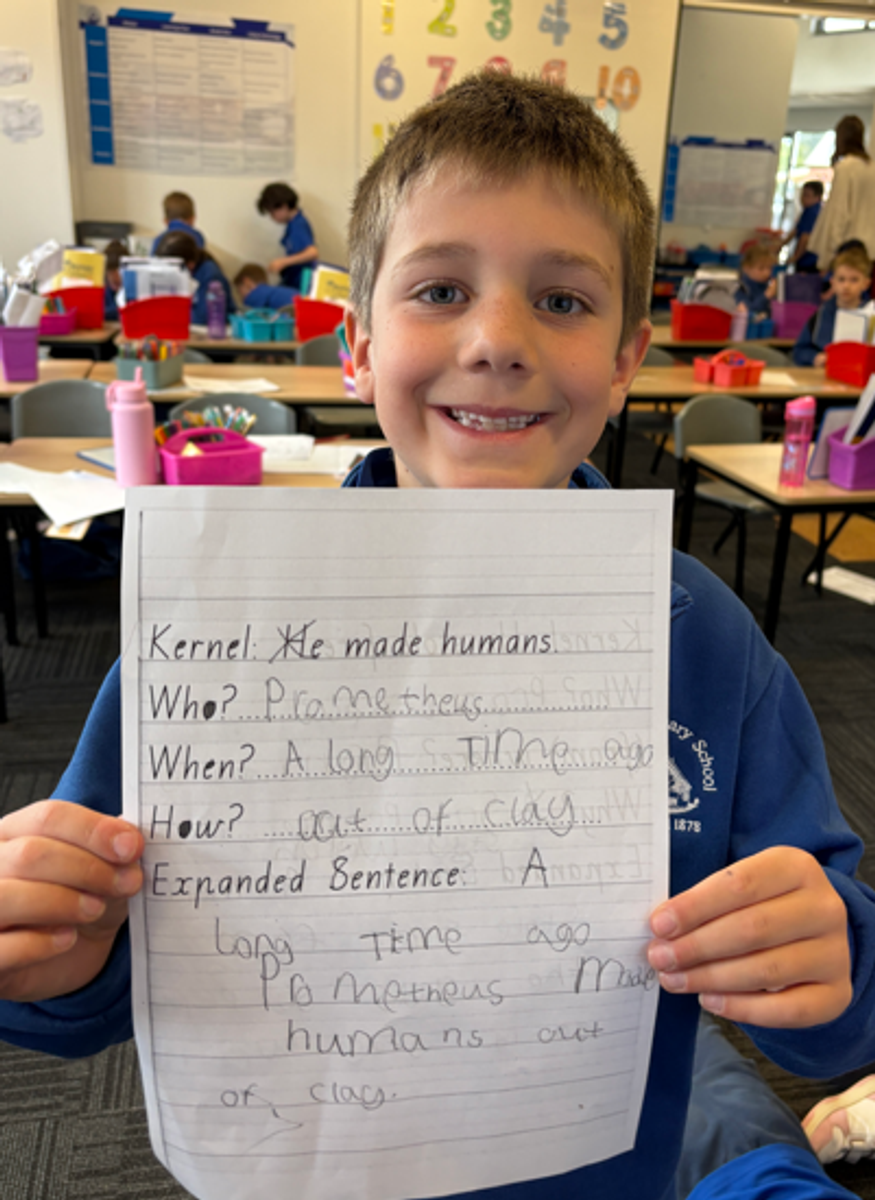 1 2 3 4 5
6 7 8 9 10
Kernel: He made humans.
Who? Prometheus
When? A long Time ago
How? out of clay
Expanded Sentence: A
long Time ago
Prometheus Made
humans out
of clay.
ary School
1878